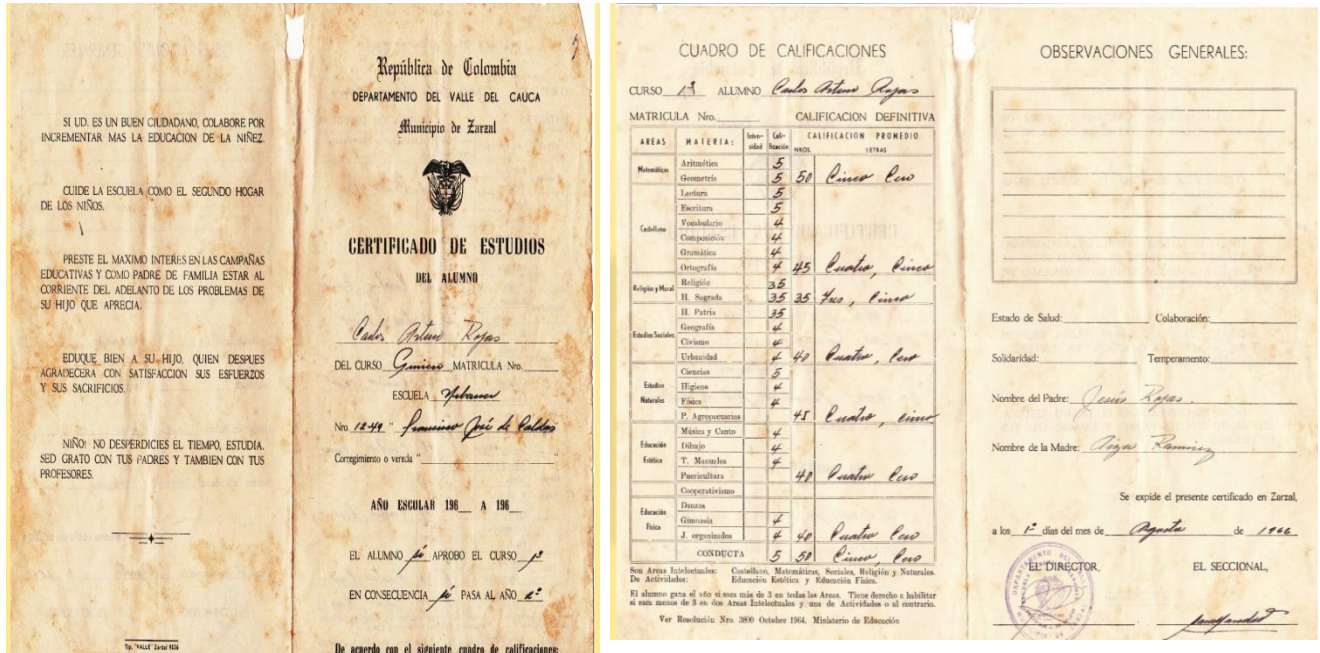 SI UD. ES UN BUEN CIUDADANO, COLABORE POR
INCREMENTAR MAS LA EDUCACION DE LA NIÑEZ.
CUIDE LA ESCUELA COMO EL SEGUNDO HOGAR
DE LOS NIÑOS.
PRESTE EL MAXIMO INTERES EN LAS CAMPAÑAS
EDUCATIVAS Y COMO PADRE DE FAMILIA ESTAR AL
CORRIENTE DEL ADELANTO DE LOS PROBLEMAS DE
SU HIJO QUE APRECIA.
EDUQUE BIEN A SU HIJO, QUIEN DESPUES
AGRADECERA CON SATISFACCION SUS ESFUERZOS
Y SUS SACRIFICIOS.
NIÑO! NO DESPERDICIES EL TIEMPO, ESTUDIA.
SED GRATO CON TUS PADRES Y TAMBIEN CON TUS
PROFESORES.
Tip. "VALLE" Zarzal
República de Colombia
DEPARTAMENTO DEL VALLE DEL CAUCA
Municipio de Zarzal
CERTIFICADO DE ESTUDIOS
DEL ALUMNO
Carlos Arturo Rojas
DEL CURSO Primero MATRICULA Nro.
ESCUELA Urbana
Nro. 1244 " Francisco José de Caldas
Corregimiento o vereda " "
AÑO ESCOLAR 196__ A 196__
EL ALUMNO si APROBO EL CURSO 1º
EN CONSECUENCIA si PASA AL AÑO 2º
De acuerdo con el siguiente cuadro de calificaciones:
CUADRO DE CALIFICACIONES
CURSO 1º ALUMNO Carlos Arturo Rojas
MATRICULA Nro. CALIFICACION DEFINITIVA
AREAS MATERIA: Inten-sidad Cali-ficación CALIFICACION PROMEDIO
NROS. LETRAS
Matemáticas Aritmética 5
Geometría 5 50 Cinco Cero
Castellano Lectura 5
Escritura 5
Vocabulario 4
Composición 4
Gramática 4
Ortografía 4 45 Cuatro, Cinco
Religión y Moral Religión 35
H. Sagrada 35 35 Tres, Cinco
Estudios Sociales H. Patria 35
Geografía 4
Civismo 4
Urbanidad 4 40 Cuatro, Cero
Estudios Naturales Ciencias 5
Higiene 4
Física 4
P. Agropecuarias 45 Cuatro, cinco
Educación Estética Música y Canto 4
Dibujo 4
T. Manuales 4
Puericultura 40 Cuatro Cero
Cooperativismo
Educación Física Danzas
Gimnasia 4
J. organizados 4 40 Cuatro Cero
CONDUCTA 5 50 Cinco, Cero
Son Areas Intelectuales: Castellano, Matemáticas, Sociales, Religión y Naturales.
De Actividades: Educación Estética y Educación Física.
El alumno gana el año si saca más de 3 en todas las Areas. Tiene derecho a habilitar
si saca menos de 3 en dos Areas Intelectuales y una de Actividades o al contrario.
Ver Resolución Nro. 3800 Octubre 1964. Ministerio de Educación
OBSERVACIONES GENERALES:
Estado de Salud: Colaboración:
Solidaridad: Temperamento:
Nombre del Padre: Jesús Rojas.
Nombre de la Madre: Ramirez
Se expide el presente certificado en Zarzal,
a los 1º días del mes de Agosto de 1966
EL DIRECTOR, EL SECCIONAL,